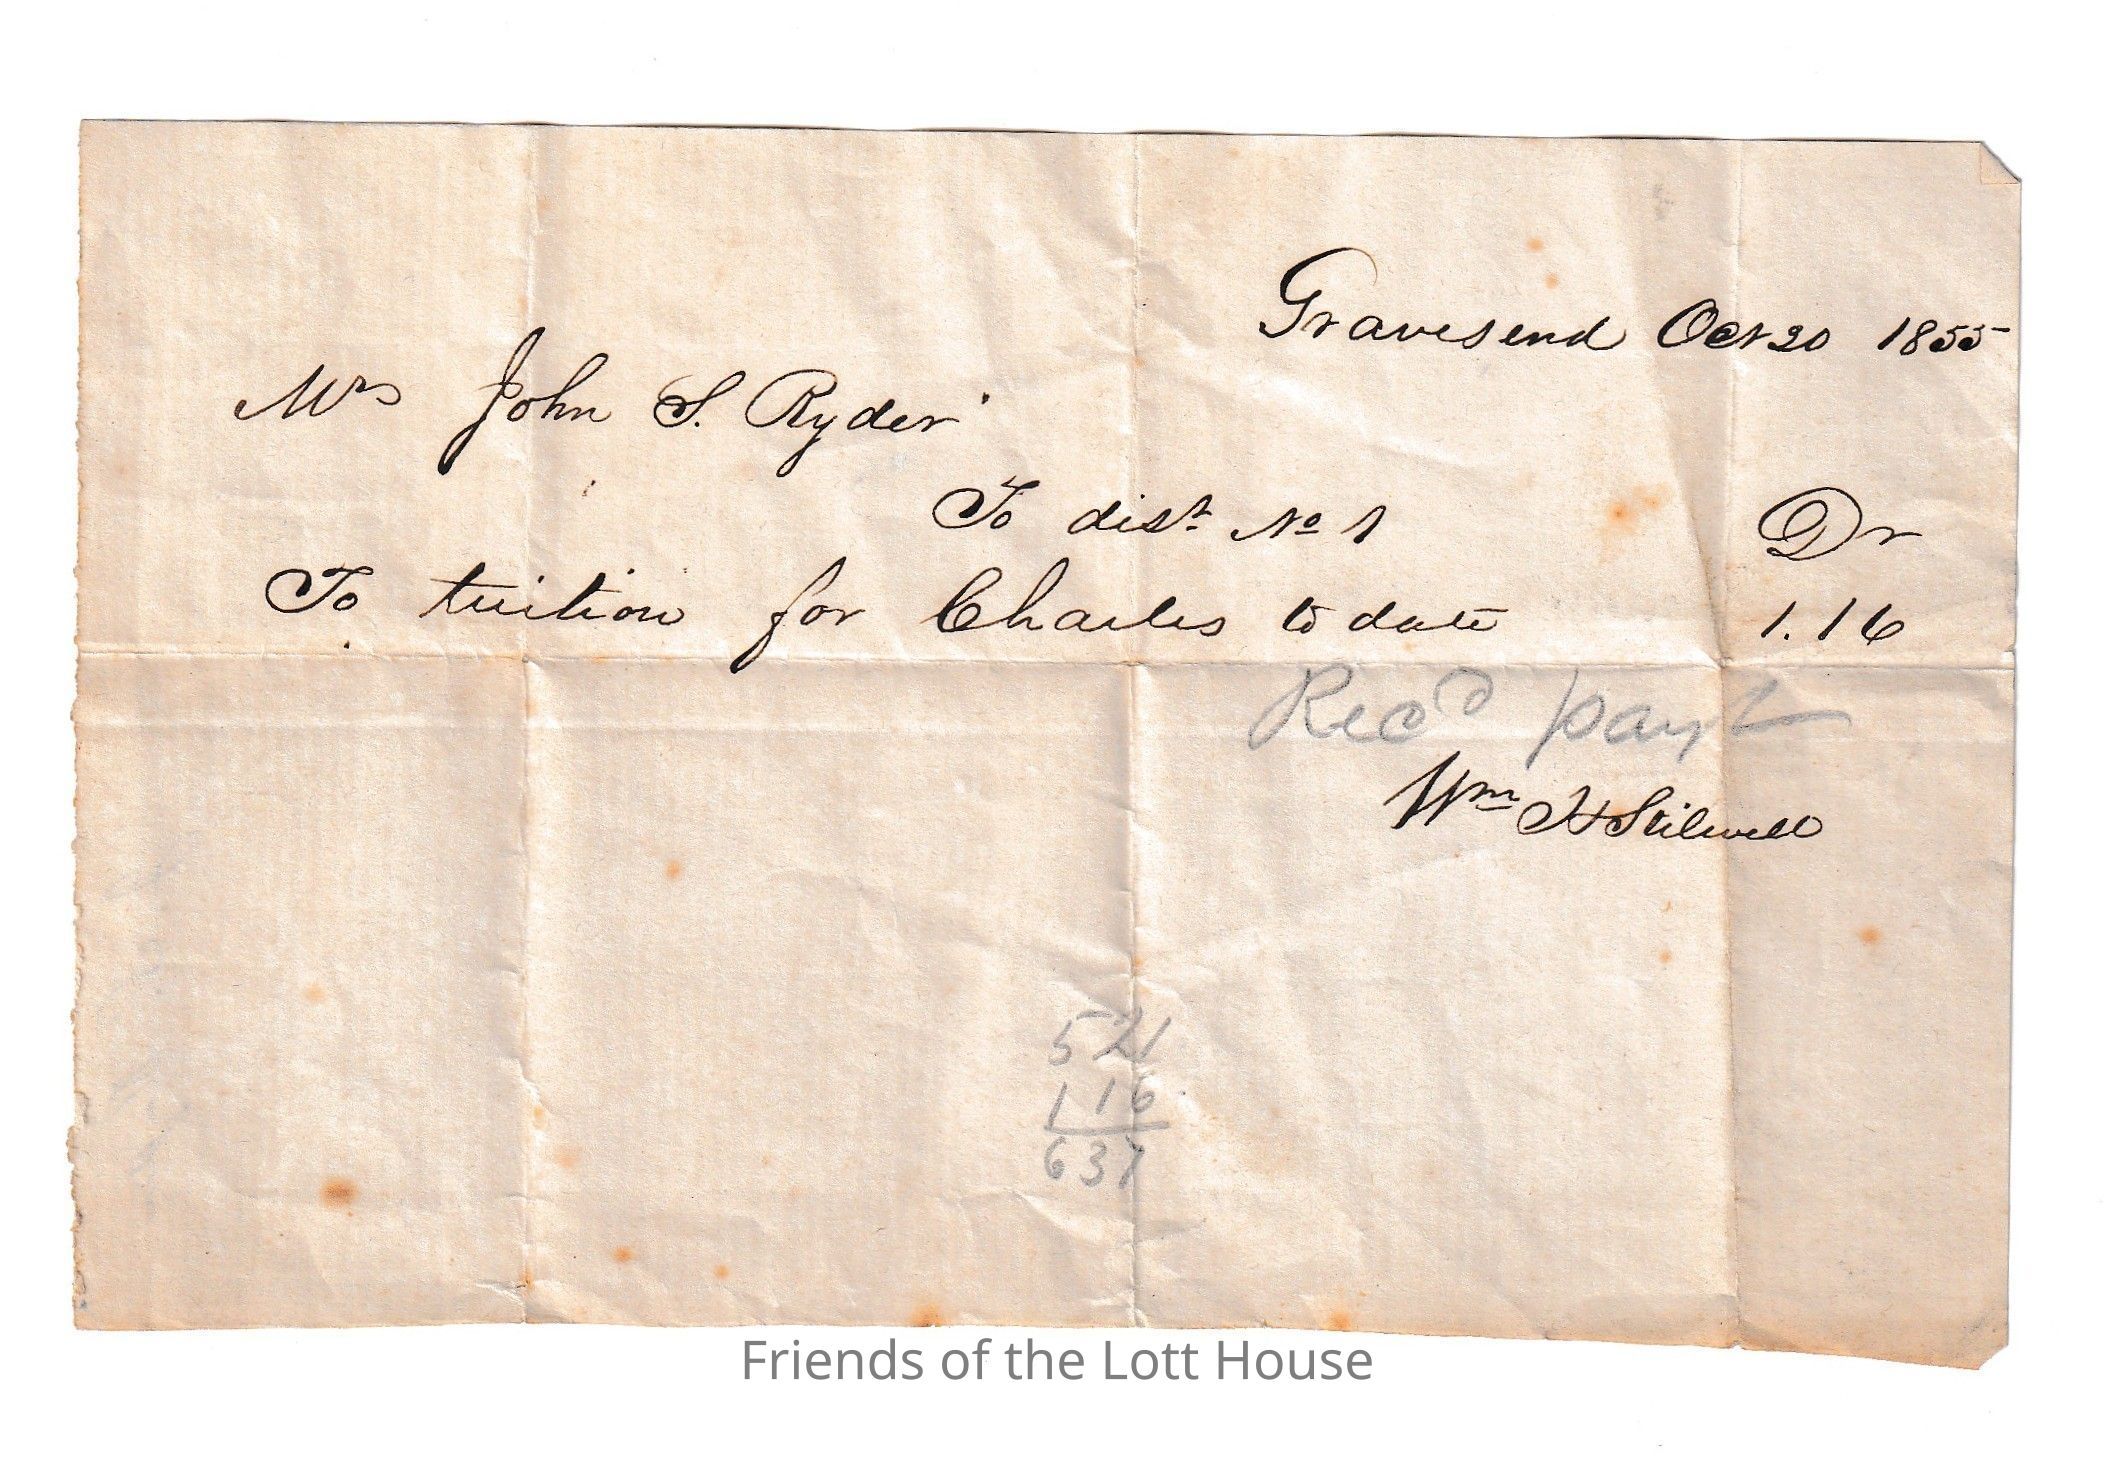 Gravesend Oct 20 1855
Mrs John S. Ryder
To dist No 1 Dr
To tuition for Charles to date 1.16
Recd payt
Wm H Stilwell
521
116
637
Friends of the Lott House